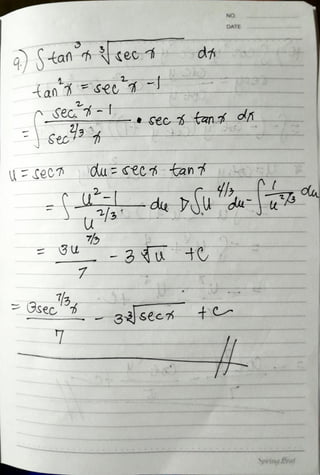 NO.
DATE
9.) ∫ tan³x ∛(sec x) dx
tan²x = sec²x - 1
= ∫ (sec²x - 1)/(sec^(2/3) x) • sec x tan x dx
u = sec x du = sec x tan x
= ∫ (u² - 1)/(u^(2/3)) du ▷ ∫ u^(4/3) du - ∫ 1/(u^(2/3)) du
= 3u^(7/3)/7 - 3∛u + C
= 3sec^(7/3) x/7 - 3∛(sec x) + C
Spring Leaf